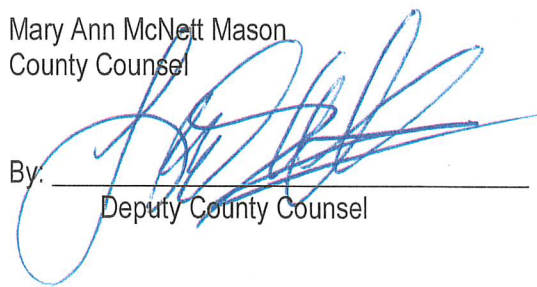 Mary Ann McNett Mason
County Counsel
By:
Deputy County Counsel